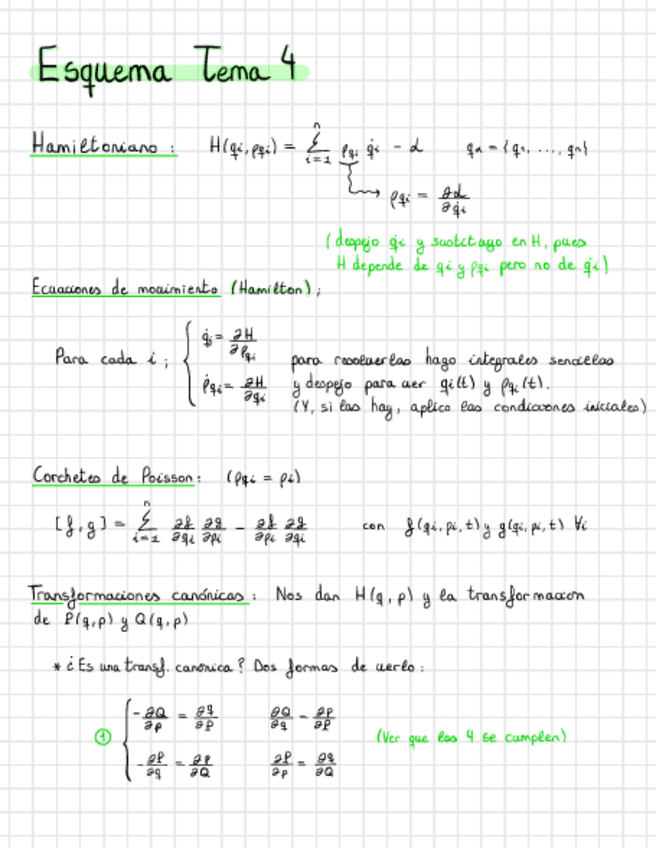 Esquema Tema 4
Hamiltoniano: H(qi, pqi) = Σ_{i=1}^{n} pqi q̇i - L    qn = {q1, ..., qn}
→ pqi = ∂L/∂q̇i
(despejo q̇i y sustituyo en H, pues
H depende de qi y pqi pero no de q̇i)
Ecuaciones de movimiento (Hamilton);
Para cada i; { q̇i = ∂H/∂pqi
ṗqi = ∂H/∂qi
para resolverlas hago integrales sencillas
y despejo para ver qi(t) y pqi(t).
(Y, si las hay, aplico las condiciones iniciales)
Corchetes de Poisson: (pqi = pi)
[f,g] = Σ_{i=1}^{n} ∂f/∂qi ∂g/∂pi - ∂f/∂pi ∂g/∂qi    con f(qi, pi, t) y g(qi, pi, t) ∀i
Transformaciones canónicas: Nos dan H(q, p) y la transformacion
de P(q,p) y Q(q,p)
* ¿Es una transf. canónica? Dos formas de verlo:
① { -∂Q/∂p = ∂q/∂P    ∂Q/∂q = ∂p/∂P
-∂P/∂q = ∂p/∂Q    ∂P/∂p = ∂q/∂Q
(Ver que las 4 se cumplen)